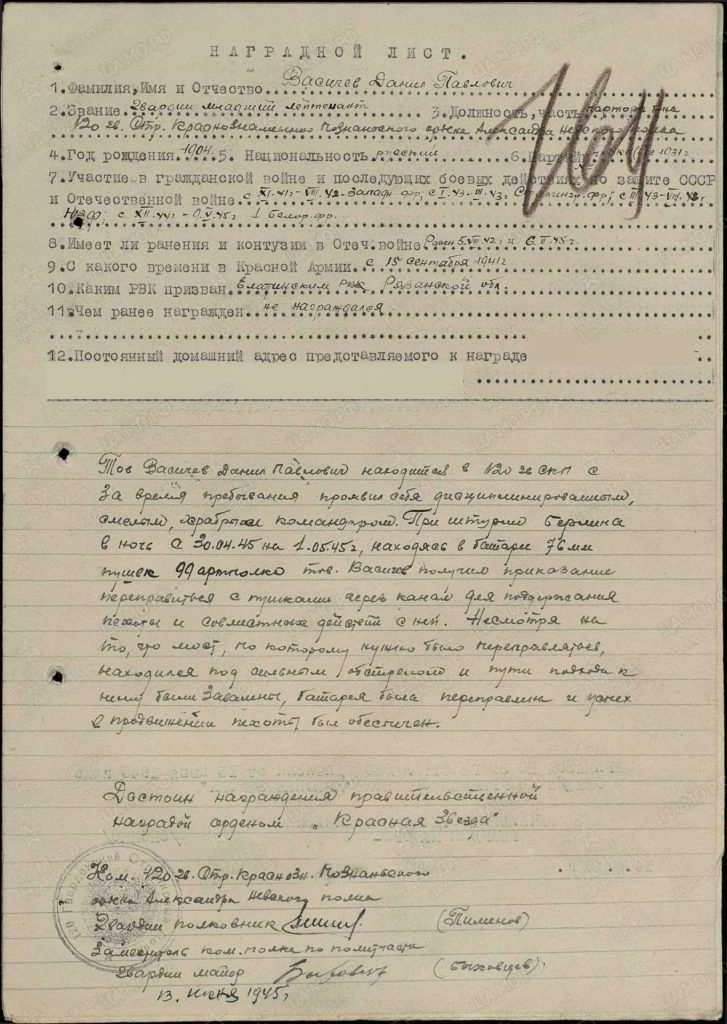 НАГРАДНОЙ ЛИСТ.
1.Фамилия,Имя и Отчество Васичев Данил Павлович
2.Звание гвардии младший лейтенант 3.Должность,часть парторг б-на
120 гв. Стр. Краснознаменного Познаньского ордена Александра Невского полка
4.Год рождения 1904. 5. Национальность русский 6. 1931г
7.Участие в гражданской войне и последующих боевых действиях по защите СССР
и Отечественной войне с XI.41г - VIII.42-Запади фр; с I.43-III.43, фр; с III.43-VIII.43,
ЮЗФ; с XII.44г - 9.V.45г 1 Белор.фр.
8.Имеет ли ранения и контузии в Отеч.войне Ранен 5.VIII.42г и 6.II.45г.
9.С какого времени в Красной Армии. с 15 сентября 1941г
10.Каким РВК призван Елатинским РВК Рязанской обл.
11.Чем ранее награжден не награждался
12.Постоянный домашний адрес представляемого к награде
Тов Васичев Данил Павлович находится в 120 гв СКП с
За время пребывания проявил себя дисциплинированным,
смелым, храбрым командиром. При штурме Берлина
в ночь с 30.04.45 на 1.05.45г, находясь в батареи 76мм
пушек 99артполка тов. Васичев получил приказание
переправиться с пушками через канал для поддержания
пехоты и совместных действий с ней. Несмотря на
то, что мост, по которому нужно было переправляться,
находился под сильным обстрелом и пути подхода к
нему были завалены, батарея была переправлена и успех
в продвижении пехоты был обеспечен.
Достоин награждения правительственной
наградой орденом „Красная Звезда"
Ком. 120 гв. Стр. Краснозн. Познаньского
орден Александра Невского полка
Гвардии полковник (Пименов)
Заместитель ком. полка по политчасти
гвардии майор (Быховцев).
13. июня 1945г